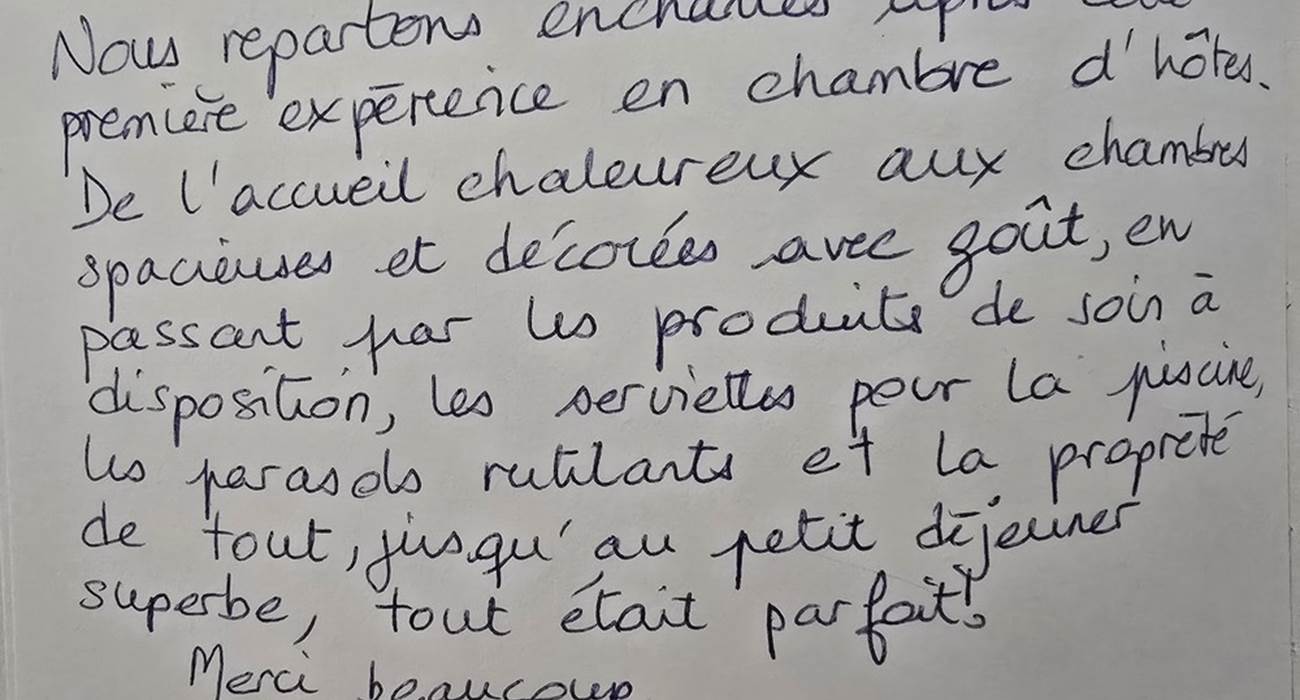 Nous repartons enchantés après cette
première expérience en chambre d'hôtes.
De l'accueil chaleureux aux chambres
spacieuses et décorées avec goût, en
passant par les produits de soin à
disposition, les serviettes pour la piscine,
les parasols rutilants et la propreté
de tout, jusqu'au petit déjeuner
superbe, tout était parfait!
Merci beaucoup